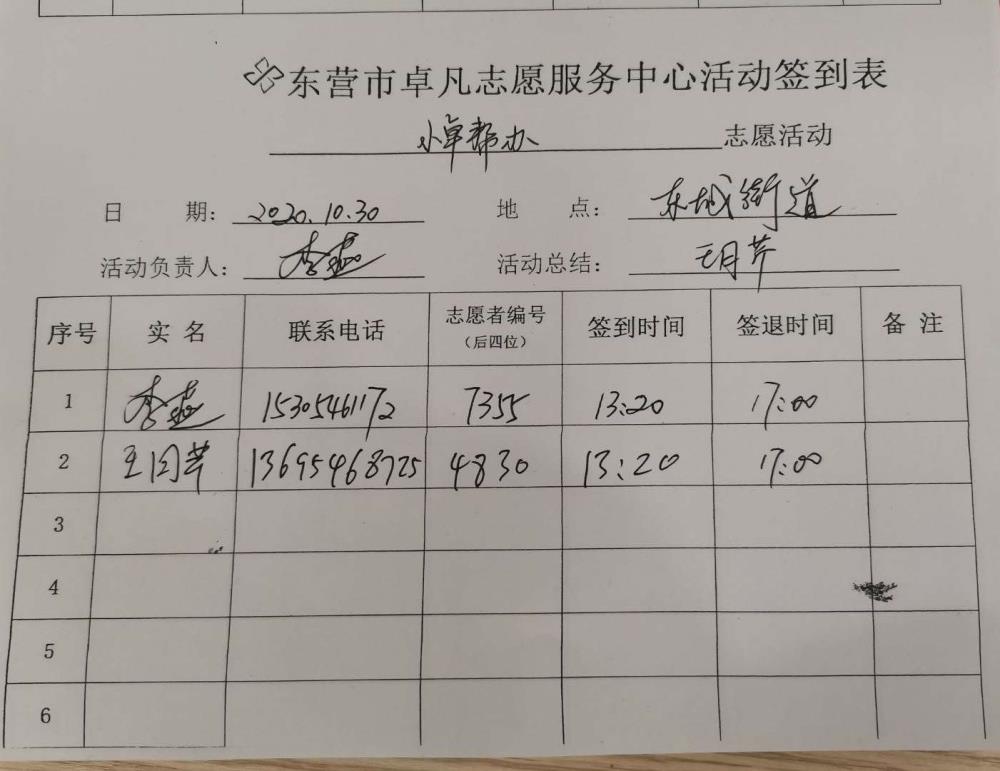 东营市卓凡志愿服务中心活动签到表
小卓帮办 志愿活动
日 期： 2020.10.30 地 点： 东城街道
活动负责人： 李燕 活动总结： 王月芹
序号 实名 联系电话 志愿者编号（后四位） 签到时间 签退时间 备注
1 李燕 15305461172 7355 13:20 17:00
2 王月芹 13695468725 4830 13:20 17:00
3
4
5
6